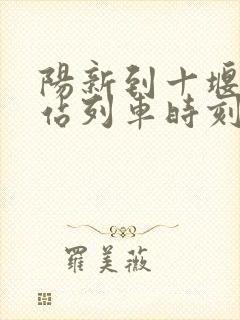 陽新到十堰
佔列車時刻
羅美薇